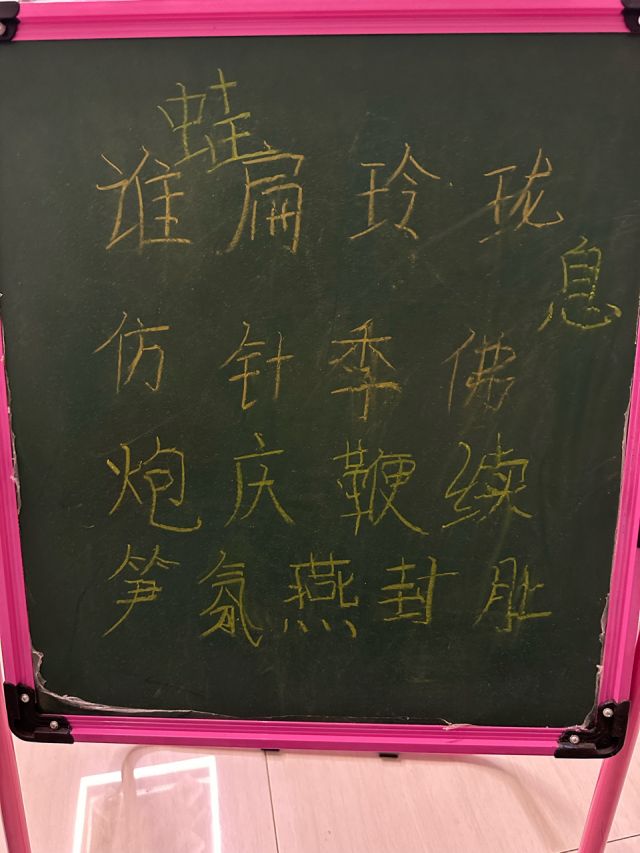 蛙
谁扁玲珑
息
仿针季佛
炮庆鞭续
笋氛燕封肚